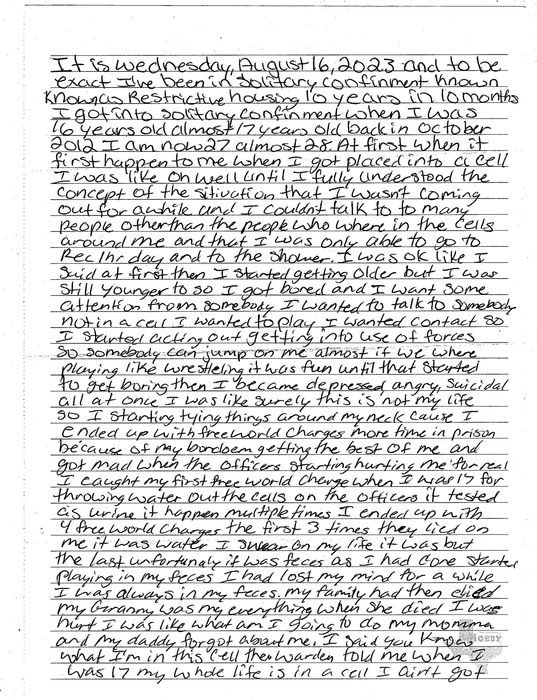 It is wednesday, August 16, 2023 and to be
exact I've been in solitary confinment known
known as Restrictive housing 10 years in 10 months
I got into solitary confinment when I was
16 years old almost 17 years old back in October
2012 I am now 27 almost 28 At first when it
first happen to me when I got placed into a cell
I was like Oh well until I fully understood the
concept of the sitivation that I wasn't coming
out for awhile and I couldn't talk to to many
people otherthan the people who where in the cells
around me and that I was only able to go to
Rec 1hr day and to the shower. I was ok like I
said at first then I started getting older but I was
still younger to so I got bored and I want some
attention from somebody I wanted to talk to somebody
not in a cell I wanted to play I wanted contact so
I started acting out getting into use of forces
so somebody can jump on me almost if we where
playing like wrestleling it was fun until that started
to get boring then I became depressed, angry, suicidal
all at once I was like surely this is not my life
so I starting tying things around my neck cause I
ended up with freeworld charges more time in prison
because of my bordoem getting the best of me and
got mad when the officers starting hurting me for real
I caught my first free world charge when I was 17 for
throwing water out the cells on the officers it tested
as urine it happen multiple times I ended up with
4 free world charges the first 3 times they lied on
me it was water I swear on my life it was but
the last unfortunaly it was feces as I had gone started
playing in my feces I had lost my mind for a while
I was always in my feces. my family had then died
my Granny was my everything when she died I was
hurt I was like what am I going to do my momma
and my daddy forgot about me. I said you know
what I'm in this cell the warden told me when I
was 17 my whole life is in a cell I ain't got